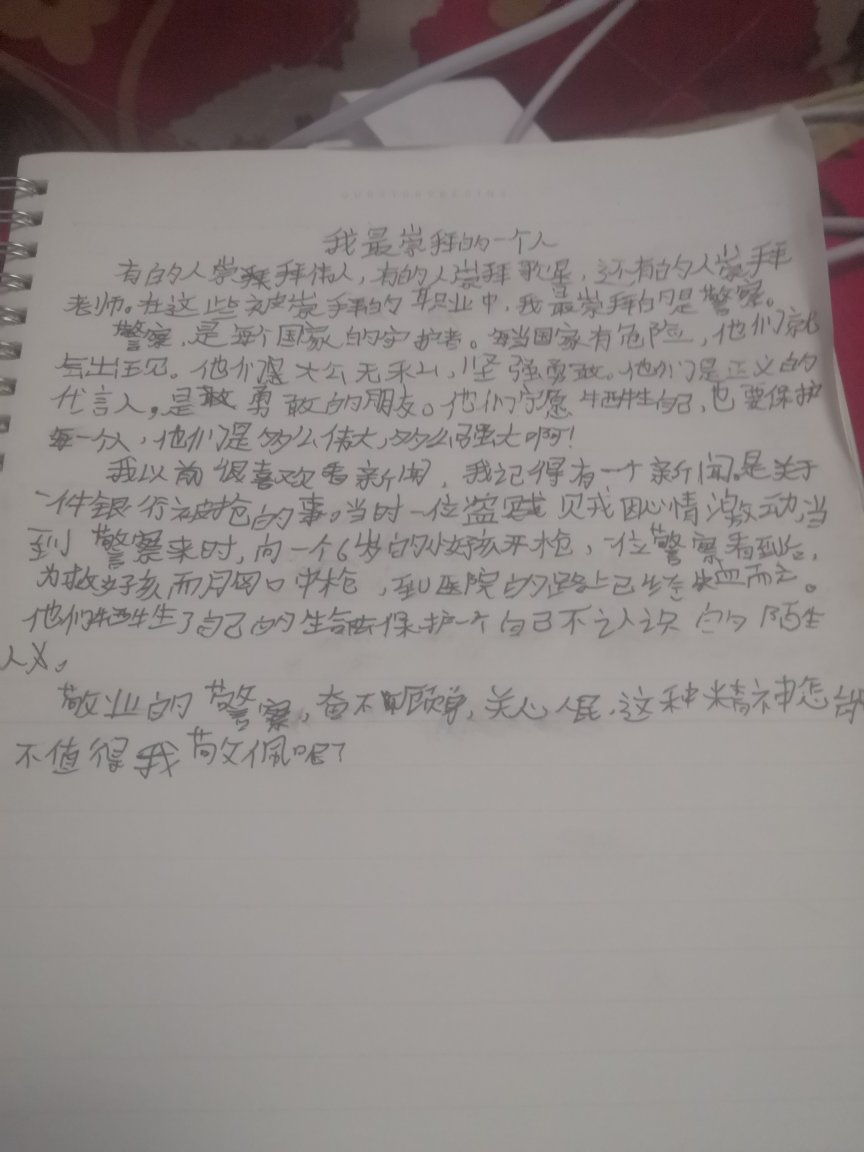 我最崇拜的一个人
有的人崇拜伟人，有的人崇拜歌星，还有的人崇拜
老师。在这些被崇拜的职业中，我最崇拜的是警察。
警察，是每个国家的守护者。每当国家有危险，他们就
会出现。他们是大公无私，坚强勇敢。他们是正义的
代言人，是勇敢的朋友。他们宁愿牺牲自己，也要保护
每一个人，他们是多么伟大，多么强大啊！
我以前很喜欢看新闻，我记得有一个新闻。是关于
一件银行被抢的事。当时一位盗贼因心情激动，当
到警察来时，向一个6岁的小女孩开枪，一位警察看到后，
为救女孩而胸口中枪，到医院的路上已失血而亡。
他们牺牲了自己的生命去保护一个自己不认识的陌生
人。
敬业的警察，奋不顾身，关心人民，这种精神怎能
不值得我敬佩呢？